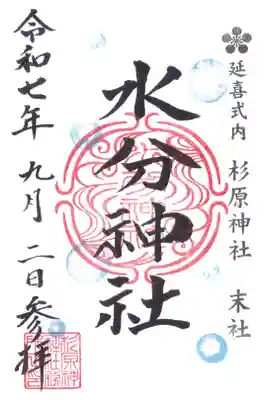 延喜式内 杉原神社 末社
水分神社
令和七年 九月 二日参拝